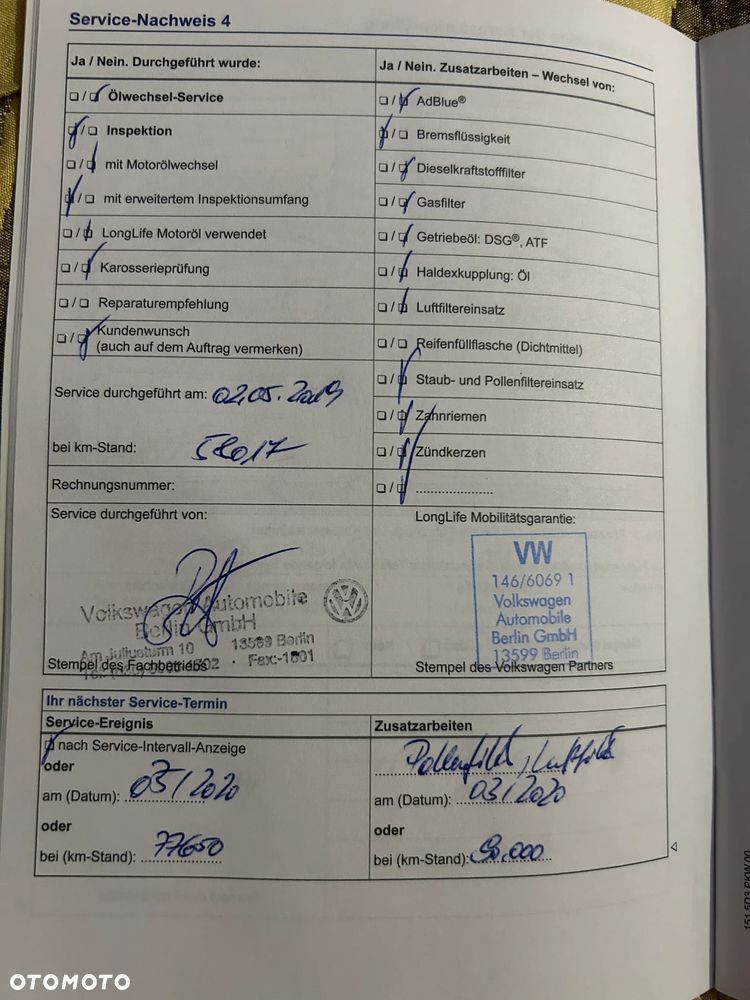 Service-Nachweis 4
Ja / Nein. Durchgeführt wurde:
Ölwechsel-Service
Inspektion
mit Motorölwechsel
mit erweitertem Inspektionsumfang
LongLife Motoröl verwendet
Karosserieprüfung
Reparaturempfehlung
Kundenwunsch
(auch auf dem Auftrag vermerken)
Service durchgeführt am: 02.05.2019
bei km-Stand: 58017
Rechnungsnummer:
Service durchgeführt von:
Volkswagen Automobile
Berlin GmbH
Am Juliusturm 10 13599 Berlin
Fax:-1801
Stempel des Fachbetriebs
Ja / Nein. Zusatzarbeiten – Wechsel von:
AdBlue®
Bremsflüssigkeit
Dieselkraftstofffilter
Gasfilter
Getriebeöl: DSG®, ATF
Haldexkupplung: Öl
Luftfiltereinsatz
Reifenfüllflasche (Dichtmittel)
Staub- und Pollenfiltereinsatz
Zahnriemen
Zündkerzen
LongLife Mobilitätsgarantie:
VW
146/6069 1
Volkswagen
Automobile
Berlin GmbH
13599 Berlin
Stempel des Volkswagen Partners
Ihr nächster Service-Termin
Service-Ereignis
nach Service-Intervall-Anzeige
oder
am (Datum): 03/2020
oder
bei (km-Stand): 77650
Zusatzarbeiten
am (Datum): 03/2020
oder
bei (km-Stand): 90.000
151.5D3.PKW.00
OTOMOTO